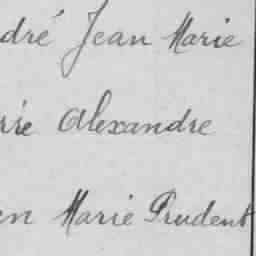 dré Jean Marie
rre Alexandre
en Marie Prudent